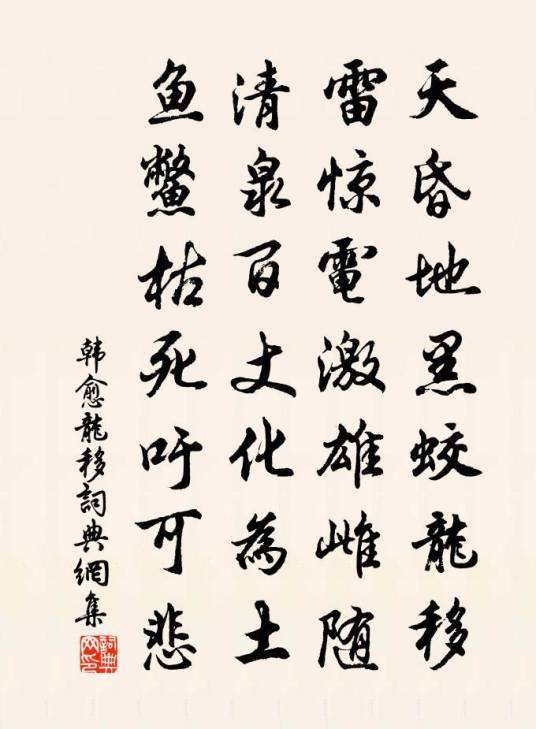 天昏地黑蛟龍移
雷惊電激雄雌随
清泉百丈化為土
鱼鱉枯死吁可悲
韩愈龍移詞典網集
詞典网印